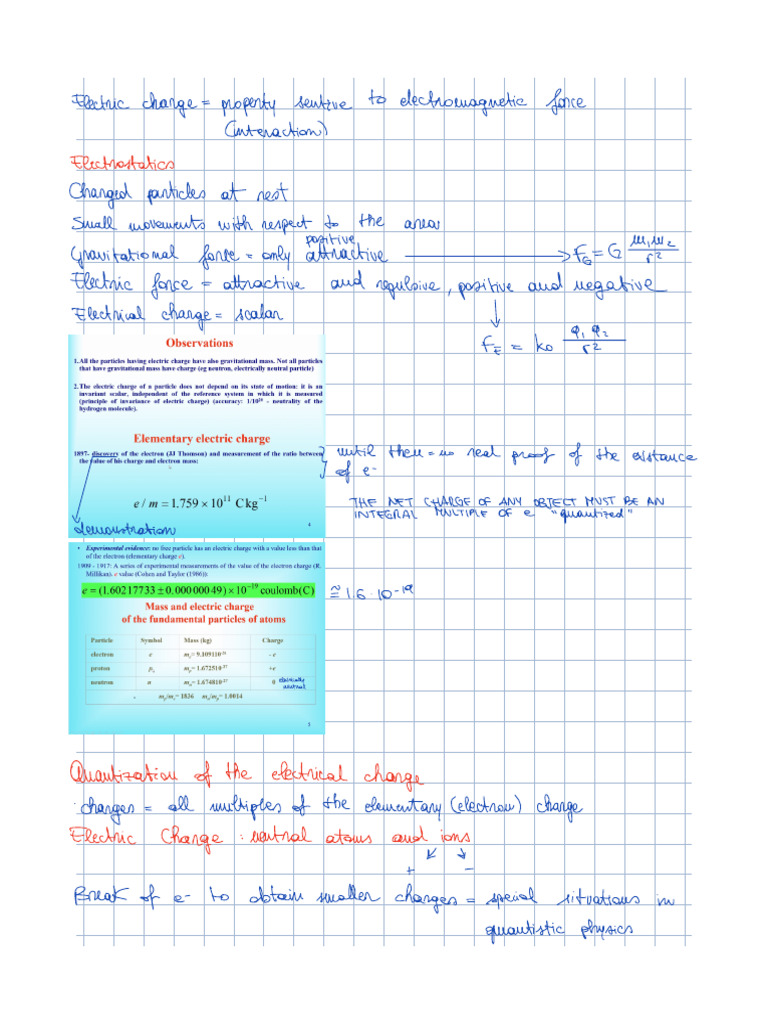 Electric charge = property sentive to electromagnetic force
(interaction)
Electrostatics
Charged particles at rest
Small movements with respect to the area
Gravitational force = only positive attractive → F_G = G m₁m₂ / r²
Electric force = attractive and repulsive, positive and negative
Electrical charge = scalar
F_E = k₀ q₁ q₂ / r²
Observations
1. All the particles having electric charge have also gravitational mass. Not all particles
that have gravitational mass have charge (eg neutron, electrically neutral particle)
2. The electric charge of a particle does not depend on its state of motion: it is an
invariant scalar, independent of the reference system in which it is measured
(principle of invariance of electric charge) (accuracy: 1/10²⁰ - neutrality of the
hydrogen molecule).
Elementary electric charge
1897- discovery of the electron (JJ Thomson) and measurement of the ratio between
the value of his charge and electron mass:
until then = no real proof of the existance
of e⁻
e / m = 1.759 × 10¹¹ C kg⁻¹
THE NET CHARGE OF ANY OBJECT MUST BE AN
INTEGRAL MULTIPLE OF e "quantized"
4
demonstration
• Experimental evidence: no free particle has an electric charge with a value less than that
of the electron (elementary charge e).
1909 - 1917: A series of experimental measurements of the value of the electron charge (R.
Millikan). e value (Cohen and Taylor (1986)):
e = (1.60217733 ± 0.00000049) × 10⁻¹⁹ coulomb(C)
≅ 1.6 · 10⁻¹⁹
Mass and electric charge
of the fundamental particles of atoms
Particle Symbol Mass (kg) Charge
electron e - e
proton +e
neutron n 0 electrically
neutral
1836 1.0014
5
Quantization of the electrical charge
· charges = all multiples of the elementary (electron) charge
Electric Charge : neutral atoms and ions
+ -
Break of e⁻ to obtain smaller charges = special situations in
quantistic physics